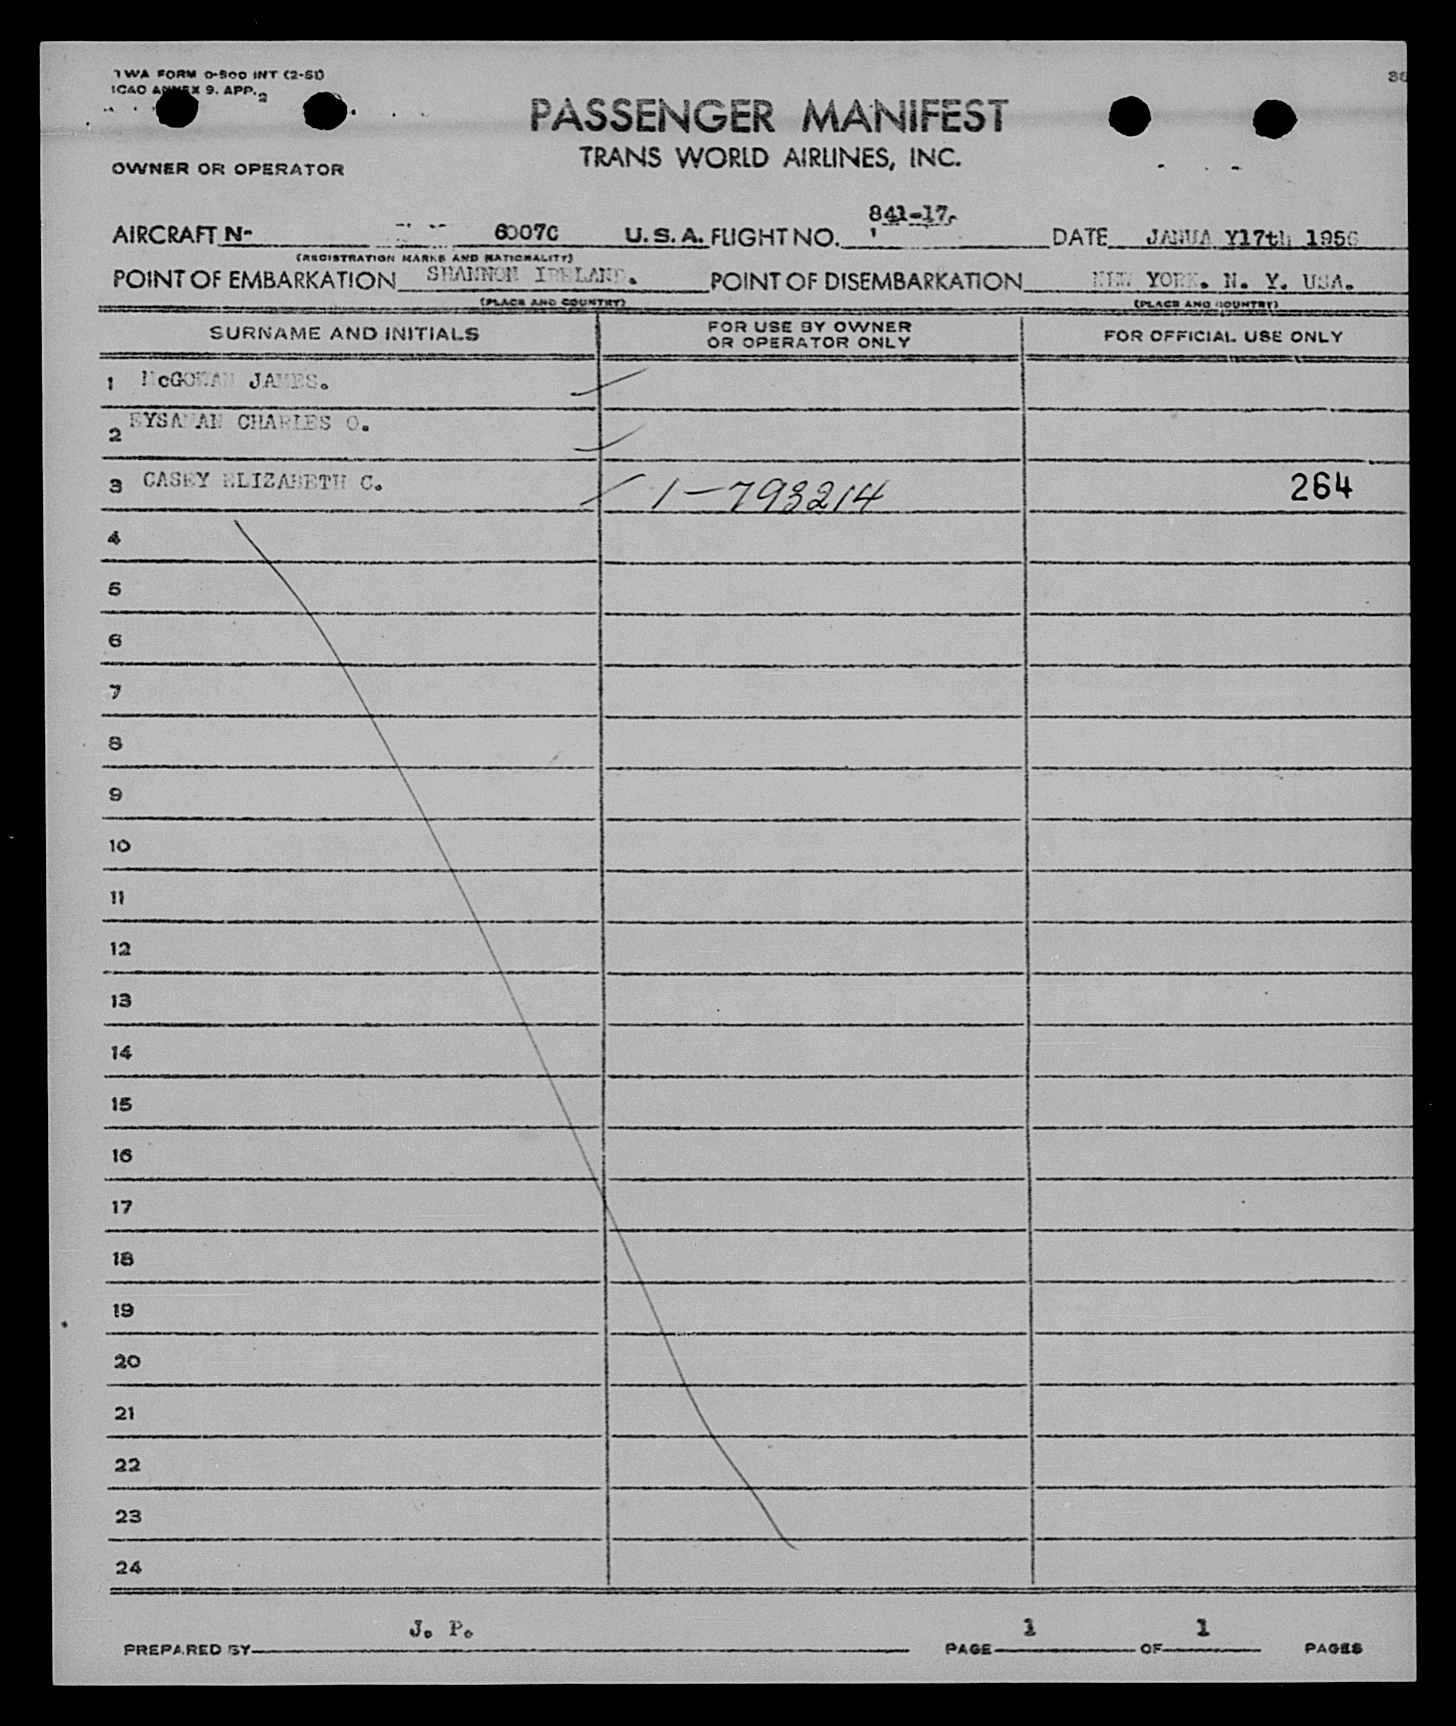 TWA FORM O-800 INT (2-51)
ICAO ANNEX 9. APP. 2
PASSENGER MANIFEST
TRANS WORLD AIRLINES, INC.
OWNER OR OPERATOR
841-17.
AIRCRAFT N- 6007C U.S.A. FLIGHT NO. DATE JANUA Y17th 1956
(REGISTRATION MARKS AND NATIONALITY)
POINT OF EMBARKATION SHANNON IRELAND. POINT OF DISEMBARKATION NEW YORK. N. Y. USA.
(PLACE AND COUNTRY) (PLACE AND COUNTRY)
SURNAME AND INITIALS FOR USE BY OWNER OR OPERATOR ONLY FOR OFFICIAL USE ONLY
1 McGOWAN JAMES.
2 CHARLES O.
3 CASEY ELIZABETH C. 1-793214 264
4
5
6
7
8
9
10
11
12
13
14
15
16
17
18
19
20
21
22
23
24
PREPARED BY J. P. PAGE 1 OF 1 PAGES